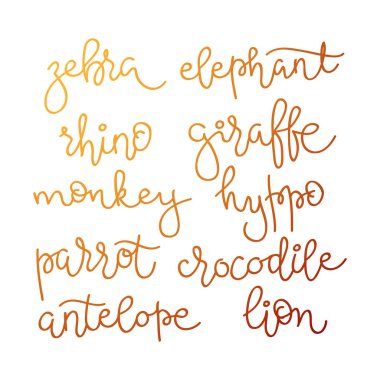 zebra elephant
rhino giraffe
monkey hyppo
parrot crocodile
antelope lion